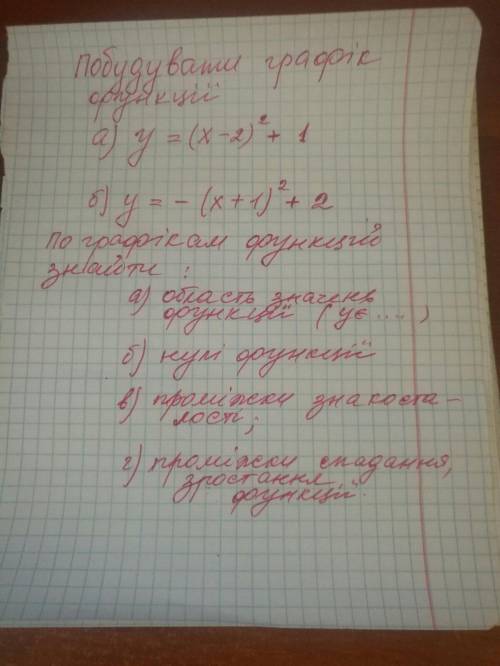 Побудувати графік
функції
а) y = (x-2)² + 1
б) y = - (x+1)² + 2
По графікам функцій
знайти :
а) область значень
функції (yє .... )
б) нулі функції
в) проміжки знакоста-
лості;
г) проміжки спадання,
зростання
функції.